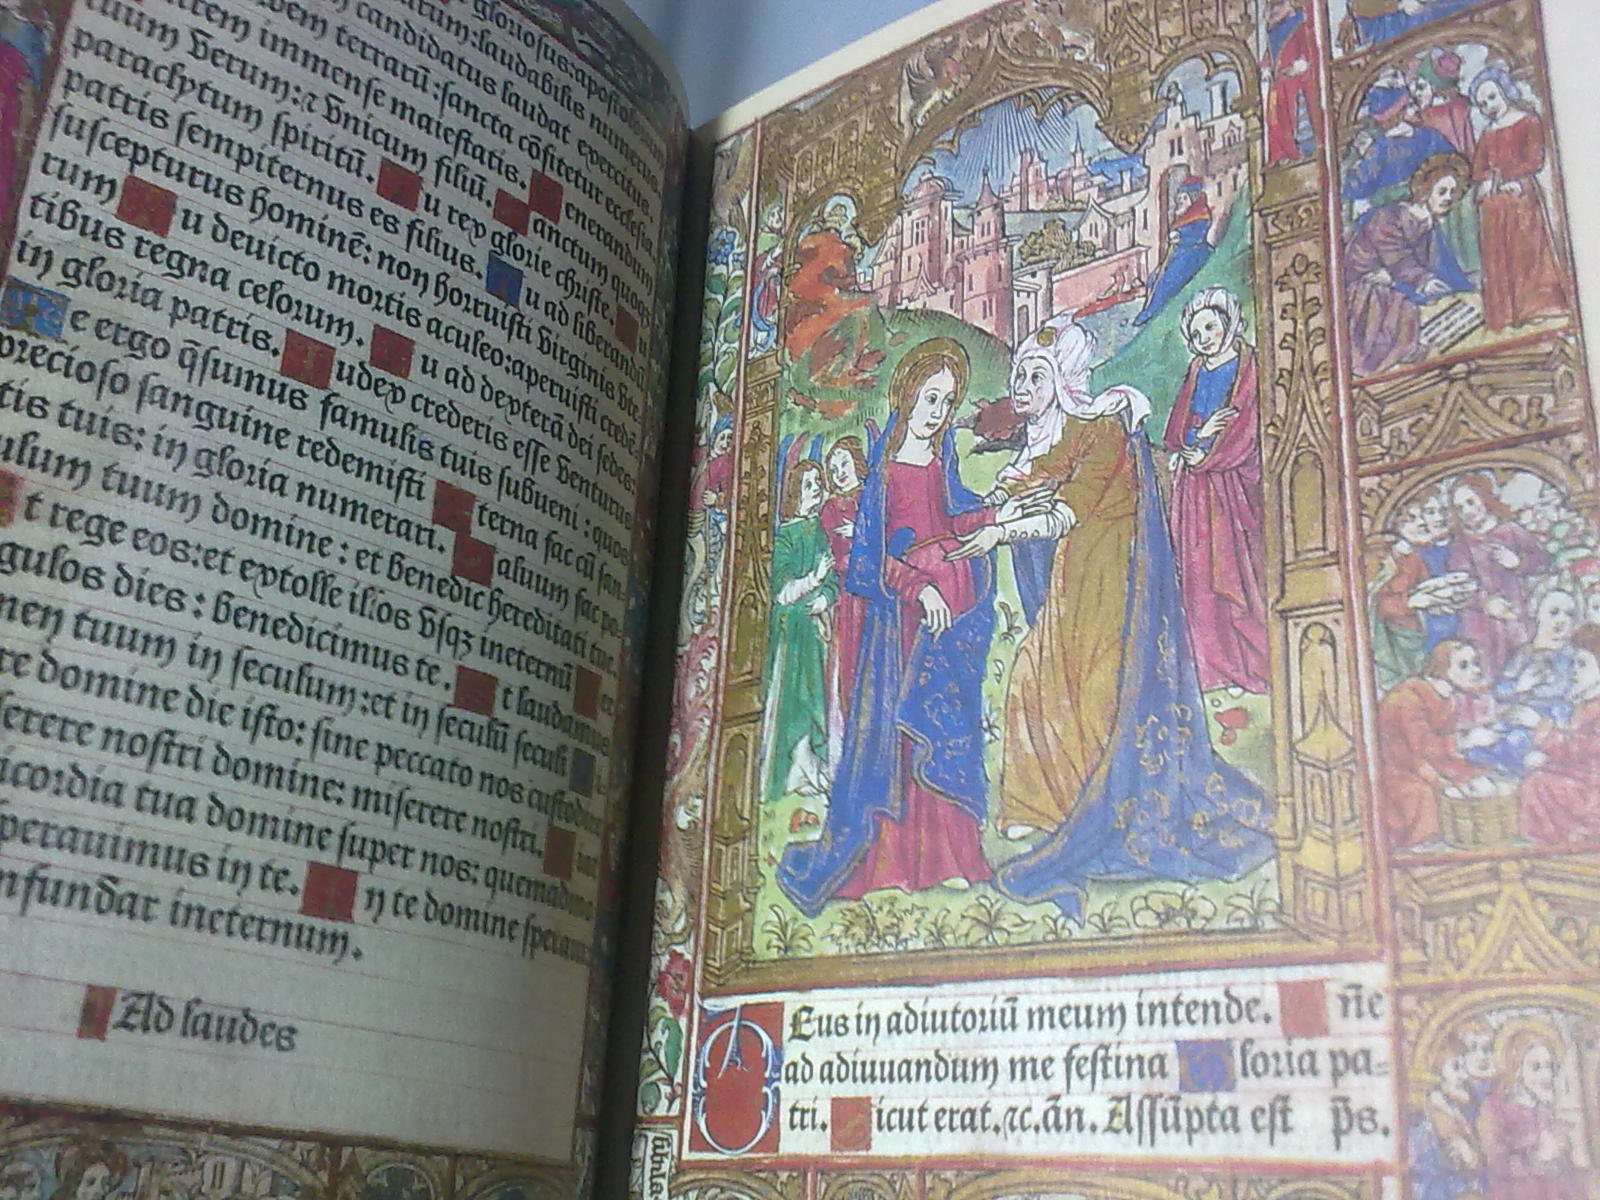 gloriosus: apostolorum
laudabilis numerus.
candidatus laudat exercitus.
terrarū: sancta cōfitetur ecclesia.
immense maiestatis. enerandum
tuum verum: ⁊ vnicum filiū. anctum quoqꝫ
paraclytum spiritū. u rex glorie christe. u
patris sempiternus es filius. u ad liberandū
suscepturus hominē: non horruisti virginis vte-
rum u deuicto mortis aculeo: aperuisti credē-
tibus regna celorum. u ad dexterā dei sedes:
in gloria patris. udex crederis esse venturus
e ergo q̄sumus famulis tuis subueni: quos
precioso sanguine redemisti terna fac cū san-
tis tuis: in gloria numerari. aluum fac po-
ulum tuum domine: et benedic hereditati tue.
t rege eos: et extolle illos vsqꝫ ineternū er
gulos dies: benedicimus te. t laudamus
men tuum in seculum: et in seculū seculi
re domine die isto: sine peccato nos custodire
serere nostri domine: miserere nostri. iat
icordia tua domine super nos: quemadmo
perauimus in te. n te domine speraui
nfundar ineternum.
Ad laudes
Deus in adiutoriū meum intende. n̄e
ad adiuuandum me festina loria pa-
tri. icut erat. ⁊c. ān. Assūpta est p̄s.